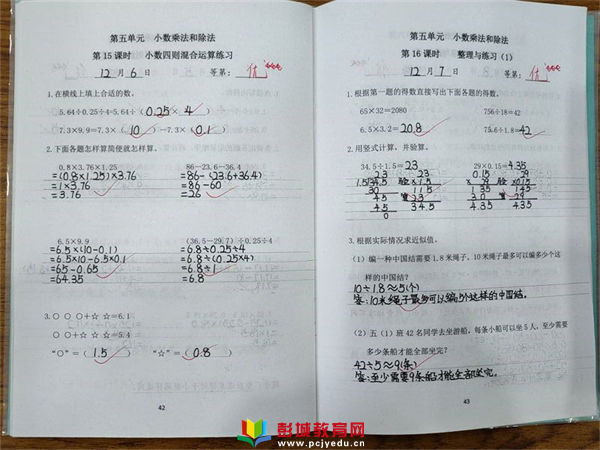 第五单元 小数乘法和除法
第15课时 小数四则混合运算练习
12月6日 等第：优
1.在横线上填上合适的数。
5.64÷0.25÷4=5.64÷(0.25×4)
7.3×9.9=7.3×(10)-7.3×(0.1)
2.下面各题怎样算简便就怎样算。
0.8×3.76×1.25
=(0.8×1.25)×3.76
=1×3.76
=3.76
86-23.6-36.4
=86-(23.6+36.4)
=86-60
=26
6.5×9.9
=6.5×(10-0.1)
=6.5×10-6.5×0.1
=65-0.65
=64.35
(36.5-29.7)÷0.25÷4
=6.8÷0.25÷4
=6.8÷(0.25×4)
=6.8÷1
=6.8
3.○ ○ ○+☆ ☆=6.1
○ ○ ○+☆=5.4
"○"=(1.5) "☆"=(0.8)
42
第五单元 小数乘法和除法
第16课时 整理与练习(1)
12月7日 等第：优
1.根据第一题的得数直接写出下面各题的得数。
65×32=2080 756÷18=42
6.5×3.2=20.8 75.6÷1.8=42
2.用竖式计算，并验算。
34.5÷1.5=23 29×0.15=4.35
3.根据实际情况求近似值。
(1) 编一种中国结需要1.8米绳子，10米绳子最多可以编多少个这
样的中国结?
10÷1.8≈5(个)
答:10米绳子最多可以编5个这样的中国结。
(2) 五(1)班42名同学去坐游船，每条小船可以坐5人，至少需要
多少条船才能全部坐完?
42÷5≈9(条)
答:至少需要9条船才能全部坐完。
43
彭城教育网
www.pcjyedu.cn